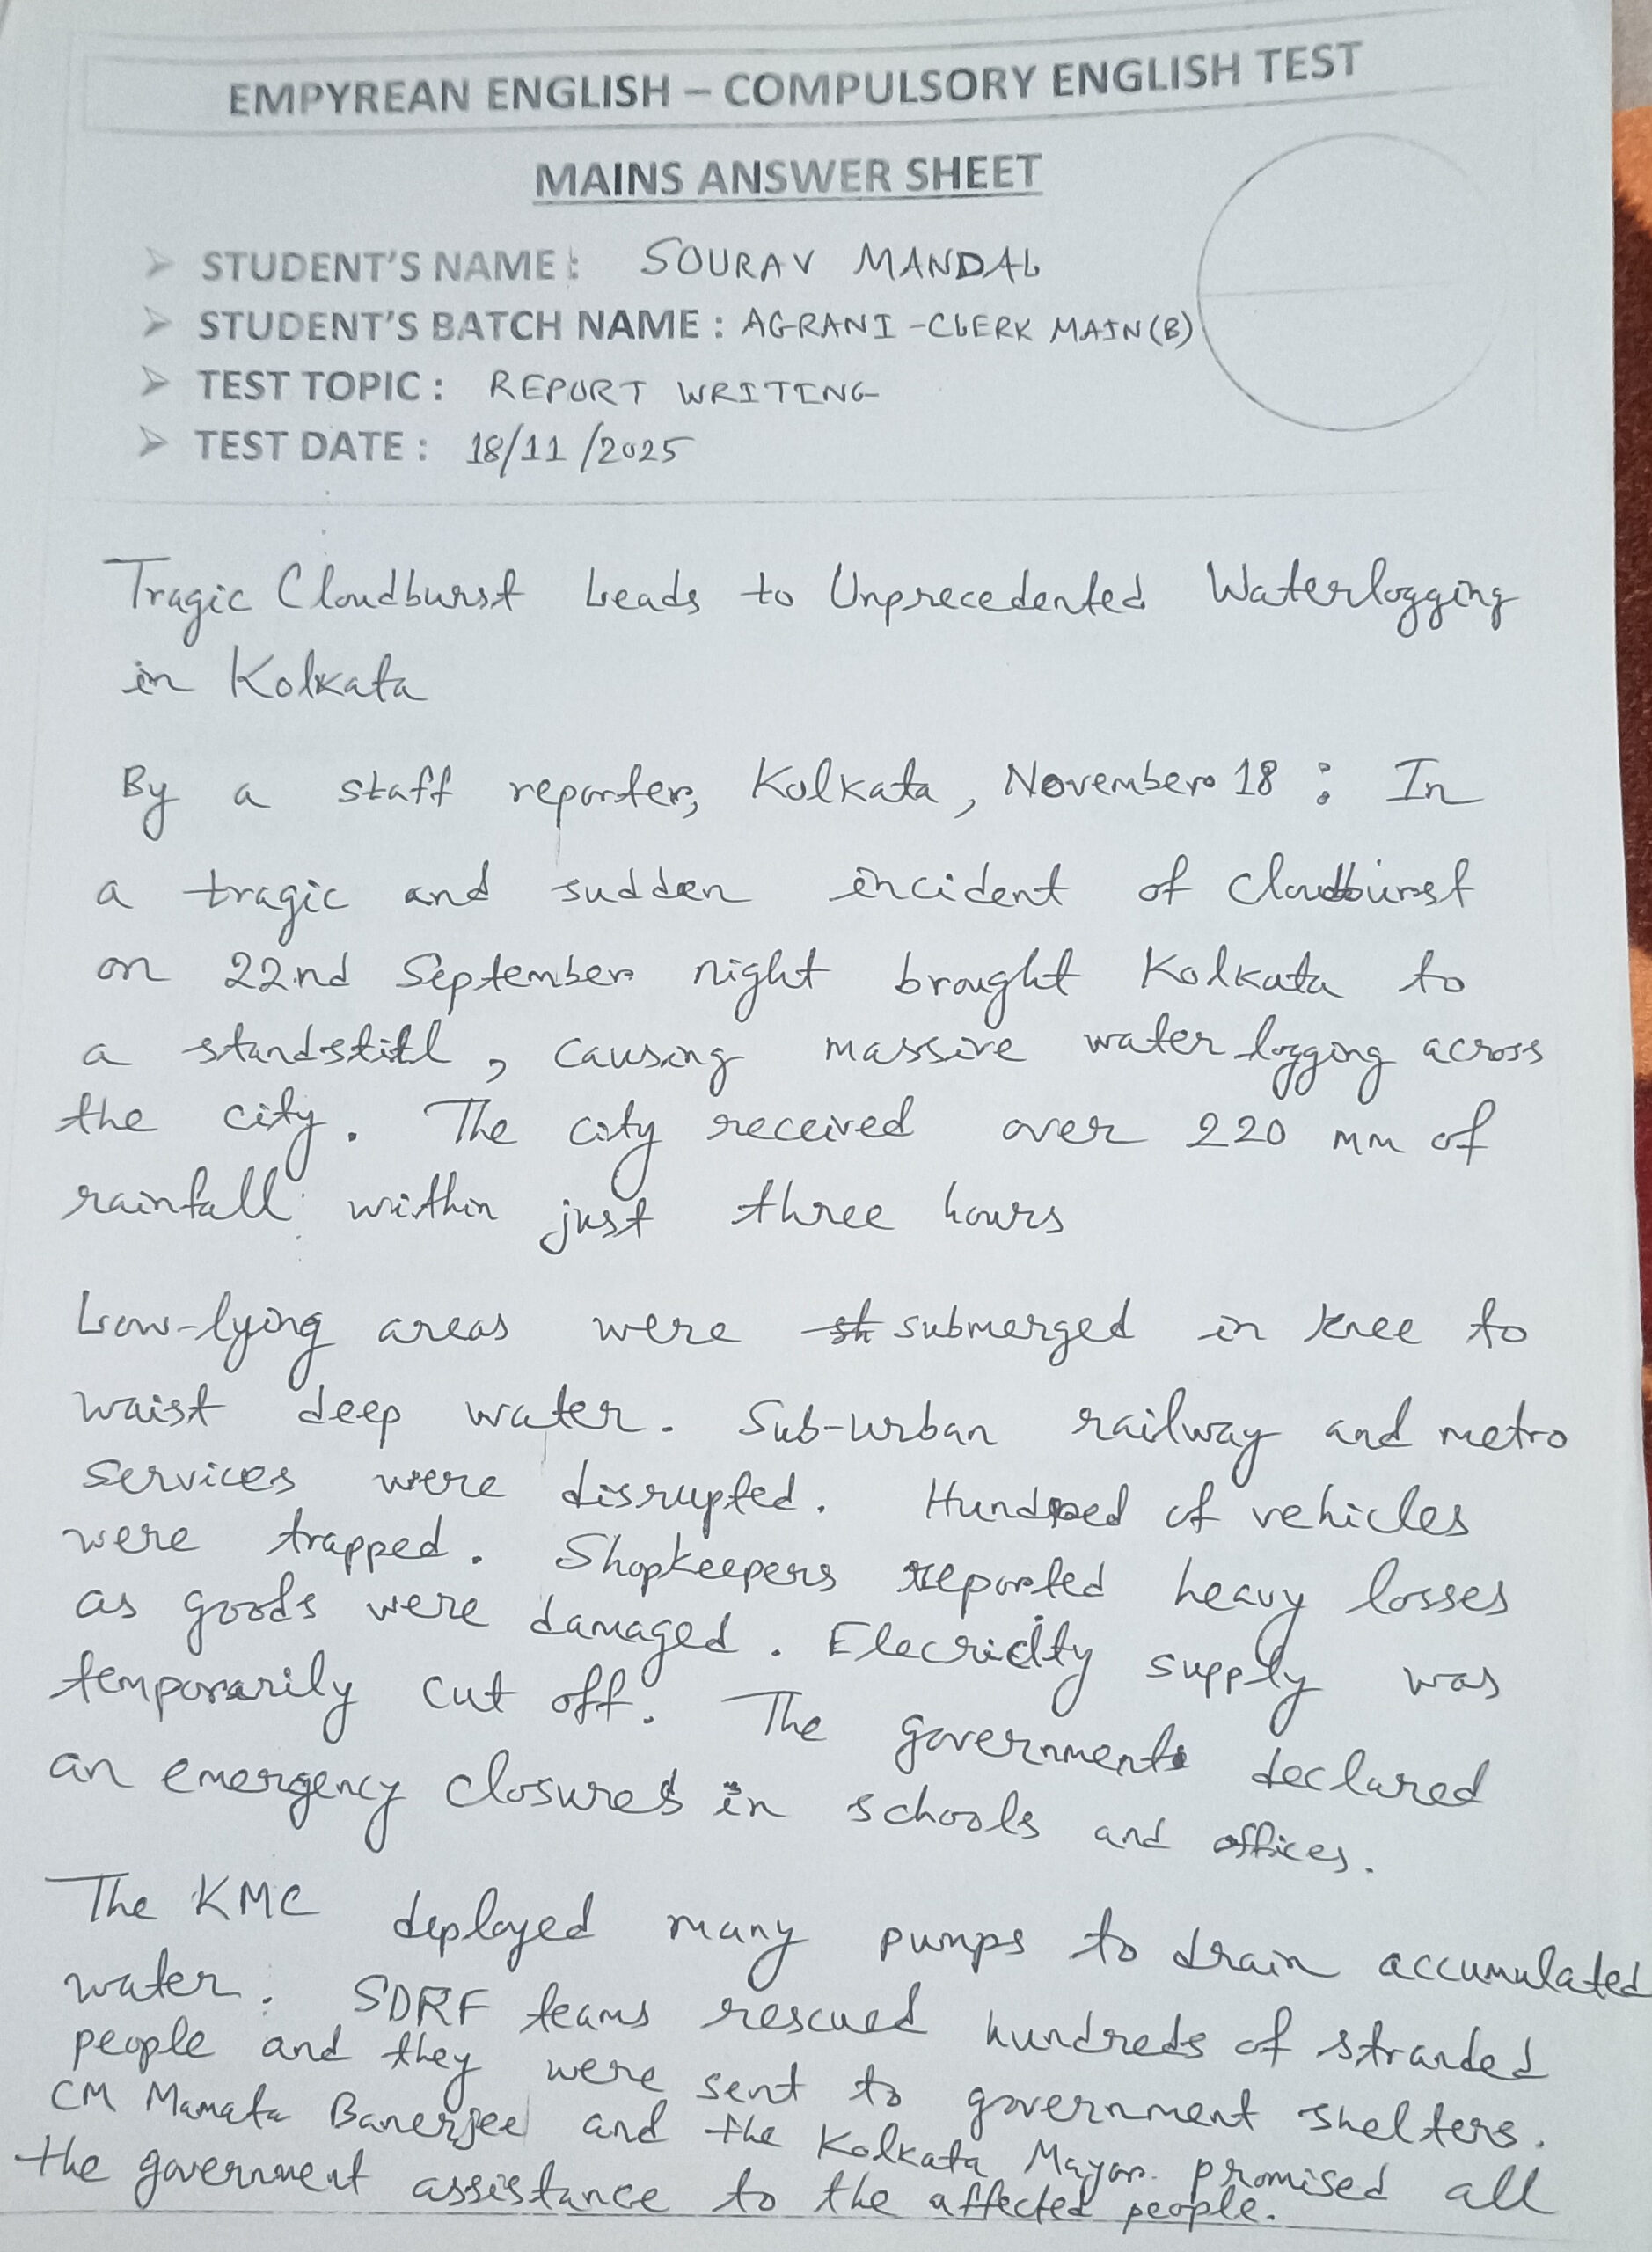 EMPYREAN ENGLISH – COMPULSORY ENGLISH TEST
MAINS ANSWER SHEET
➢ STUDENT'S NAME: SOURAV MANDAL
➢ STUDENT'S BATCH NAME : AGRANI -CLERK MAIN(B)
➢ TEST TOPIC : REPORT WRITING
➢ TEST DATE : 18/11/2025
Tragic Cloudburst Leads to Unprecedented Waterlogging
in Kolkata
By a staff reporter, Kolkata, November 18 : In
a tragic and sudden incident of cloudburst
on 22nd September night brought Kolkata to
a standstill, causing massive water logging across
the city. The city received over 220 mm of
rainfall within just three hours
Low-lying areas were submerged in knee to
waist deep water. Sub-urban railway and metro
services were disrupted. Hundred of vehicles
were trapped. Shopkeepers reported heavy losses
as goods were damaged. Elecricity supply was
temporarily cut off. The government declared
an emergency closures in schools and offices.
The KMC deployed many pumps to drain accumulated
water. SDRF teams rescued hundreds of stranded
people and they were sent to government shelters.
CM Mamata Banerjee and the Kolkata Mayor promised all
the government assistance to the affected people.